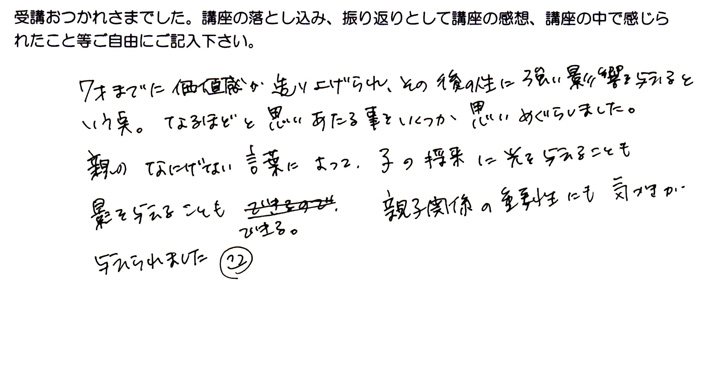 受講おつかれさまでした。講座の落とし込み、振り返りとして講座の感想、講座の中で感じら
れたこと等ご自由にご記入下さい。
7才までに価値感が造り上げられ、その後の人生に強い影響を与えると
いう点。なるほどと思いあたる事をいくつか思いめぐらしました。
親のなにげない言葉によって、子の将来に光を与えることも
影を与えることも できるので 親子関係の重要性にも気づきが
できる。
与えられました